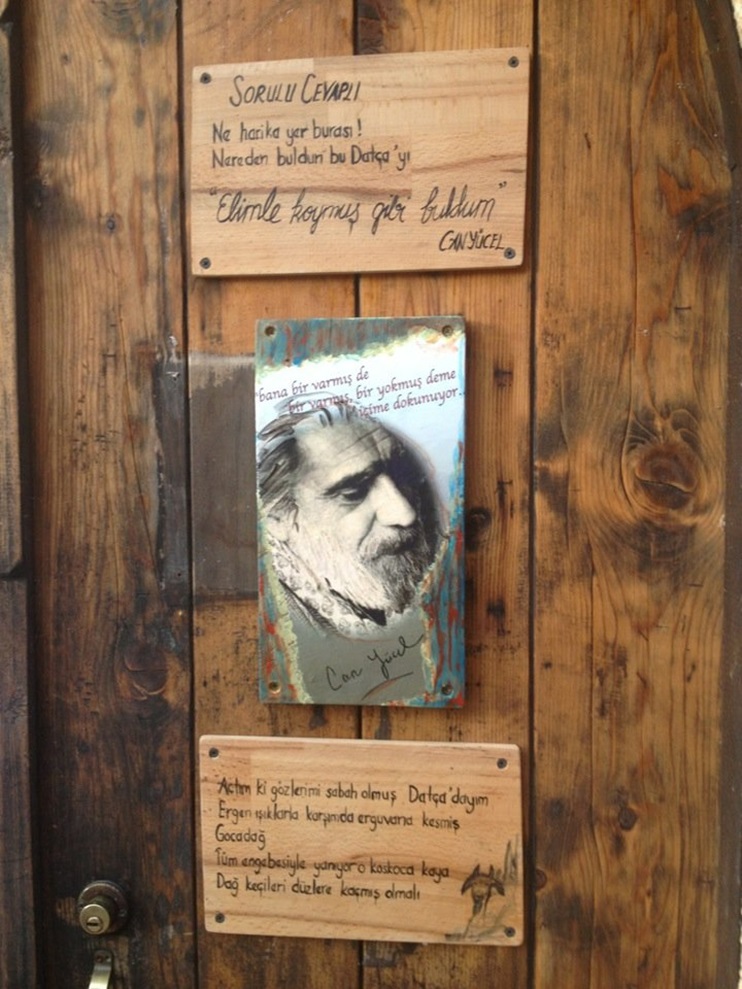 SORULU CEVAPLI
Ne harika yer burası!
Nereden buldun bu Datça'yı
"Elimle koymuş gibi buldum"
CAN YÜCEL
bana bir varmış de
bir varmış, bir yokmuş deme
içime dokunuyor..
Can Yücel
Açtım ki gözlerimi sabah olmuş Datça'dayım
Ergen ışıklarla karşımda erguvana kesmiş
Gocadağ
Tüm engebesiyle yanıyor o koskoca kaya
Dağ keçileri düzlere kaçmış olmalı